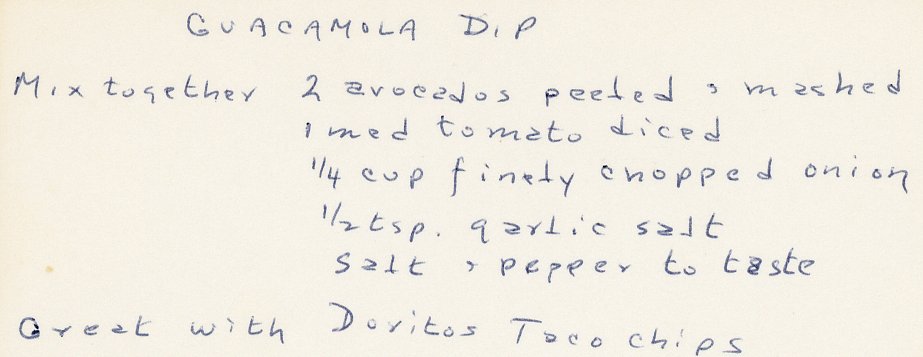 GUACAMOLA DIP
Mix together 2 avocados peeled , mashed
1 med tomato diced
1/4 cup finely chopped onion
1/2 tsp. garlic salt
Salt , pepper to taste
Great with Doritos Taco chips